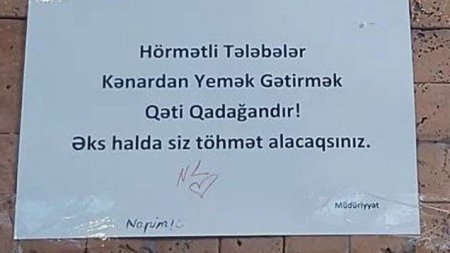 Hörmətli Tələbələr
Kənardan Yemək Gətirmək
Qəti Qadağandır!
Əks halda siz töhmət alacaqsınız.
NL
Müdüriyyət